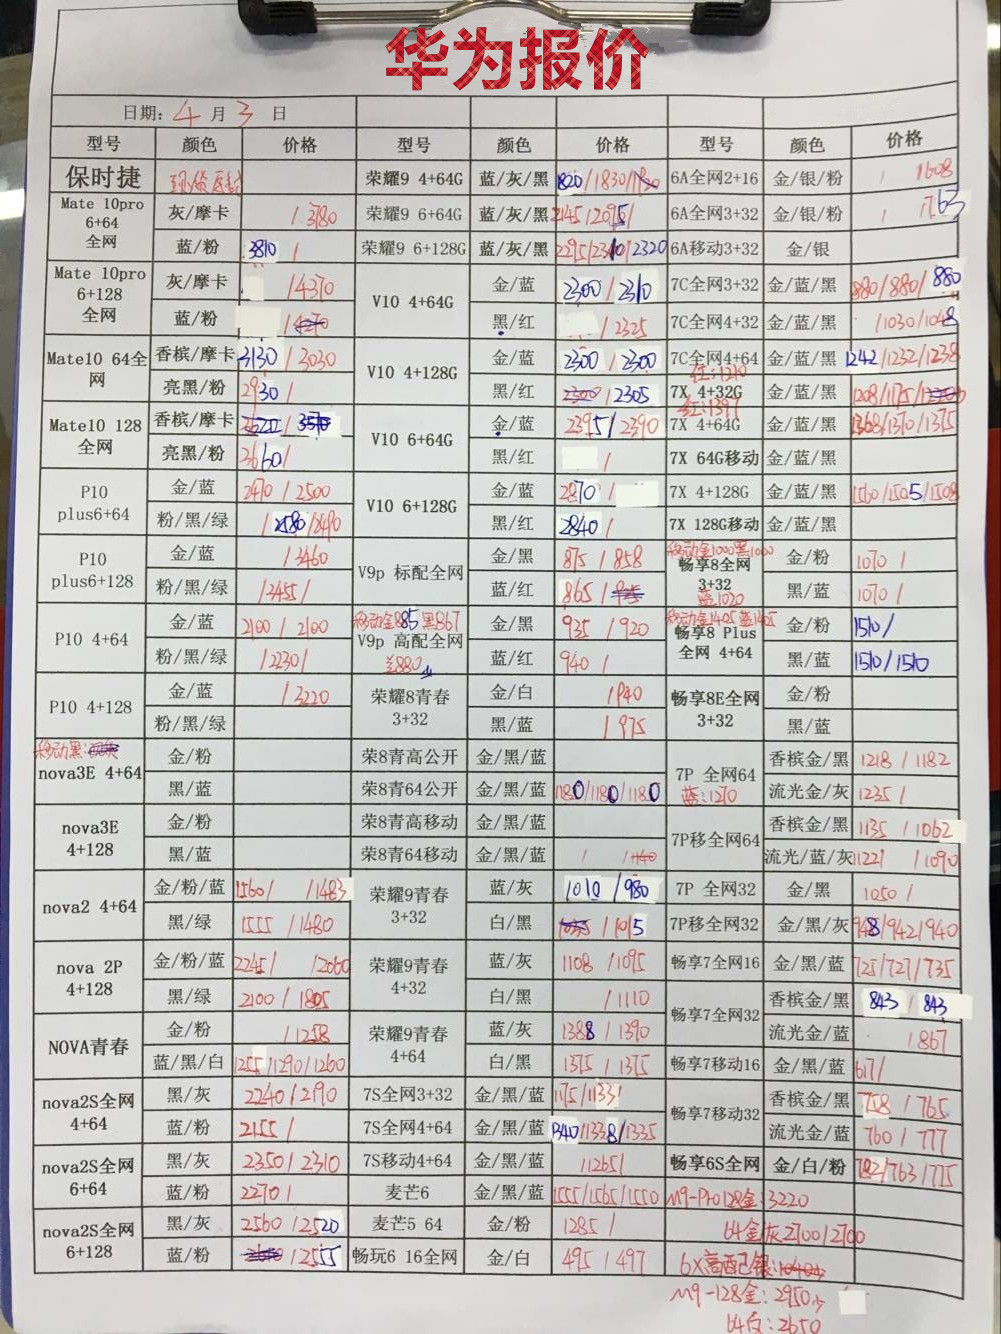 华为报价
日期: 4 月 3 日
型号 颜色 价格 型号 颜色 价格 型号 颜色 价格
保时捷 荣耀9 4+64G 蓝/灰/黑 820/1830/ 6A全网2+16 金/银/粉 / 1608
Mate 10pro 6+64 全网 灰/摩卡 / 3780 荣耀9 6+64G 蓝/灰/黑 2145/2095/ 6A全网3+32 金/银/粉 / 1763
蓝/粉 3810 / 荣耀9 6+128G 蓝/灰/黑 2295/2310/2320 6A移动3+32 金/银
Mate 10pro 6+128 全网 灰/摩卡 /4370 V10 4+64G 金/蓝 2300 / 2310 7C全网3+32 金/蓝/黑 880/880/ 880
蓝/粉 黑/红 / 2325 7C全网4+32 金/蓝/黑 /1030/1048
Mate10 64全网 香槟/摩卡 3130 / 3030 V10 4+128G 金/蓝 2300 / 2300 7C全网4+64 金/蓝/黑 1242/1232/1238
亮黑/粉 2930 / 黑/红 2300 / 2305 红:1210 7X 4+32G 金/蓝/黑 1208/1175/
Mate10 128全网 香槟/摩卡 V10 6+64G 金/蓝 2395/ 2390 红:1397 7X 4+64G 金/蓝/黑 1368/1370/1375
亮黑/粉 3660/ 黑/红 / 7X 64G移动 金/蓝/黑
P10 plus6+64 金/蓝 2470 / 2500 V10 6+128G 金/蓝 2870 / 7X 4+128G 金/蓝/黑 1560/1505/1508
粉/黑/绿 / 2580/2490 黑/红 2840 / 7X 128G移动 金/蓝/黑
P10 plus6+128 金/蓝 / 3460 V9p 标配全网 金/黑 875 / 858 移动金1000黑1000 畅享8全网 3+32 蓝1020 金/粉 1070 /
粉/黑/绿 /3455/ 蓝/红 865 / 黑/蓝 1070 /
P10 4+64 金/蓝 2100 / 2100 移动金885黑867 V9p 高配全网 金/黑 935 / 920 移动金1405蓝1405 畅享8 Plus 全网 4+64 金/粉 1510/
粉/黑/绿 /2230/ 蓝/红 940 / 黑/蓝 1510 / 1510
P10 4+128 金/蓝 / 3220 荣耀8青春 3+32 金/白 / 940 畅享8E全网 3+32 金/粉
粉/黑/绿 黑/蓝 / 975 黑/蓝
移动黑: nova3E 4+64 金/粉 荣8青高公开 金/黑/蓝 7P 全网64 蓝:1270 香槟金/黑 1218 / 1182
黑/蓝 荣8青64公开 金/黑/蓝 1180/1180/1180 流光金/灰 1235 /
nova3E 4+128 金/粉 荣8青高移动 金/黑/蓝 7P移全网64 香槟金/黑 1135 / 1062
黑/蓝 荣8青64移动 金/黑/蓝 / /1140 流光/蓝/灰 1122/ /1090
nova2 4+64 金/粉/蓝 1560/ /1483 荣耀9青春 3+32 蓝/灰 1010 /980 7P 全网32 金/黑 1050 /
黑/绿 1555 /1480 白/黑 1035 /1015 7P移全网32 金/黑/灰 948/942/940
nova 2P 4+128 金/粉/蓝 2245/ /2060 荣耀9青春 4+32 蓝/灰 1108 /1095 畅享7全网16 金/黑/蓝 725/727/735
黑/绿 2100 / 1805 白/黑 /1110 畅享7全网32 香槟金/黑 843 / 843
NOVA青春 金/粉 /1258 荣耀9青春 4+64 蓝/灰 1388 / 1390 流光金/蓝 / 867
蓝/黑/白 1255/1290/1260 白/黑 1375 / 1375 畅享7移动16 金/黑/蓝 617/
nova2S全网 4+64 黑/灰 2240/2190 7S全网3+32 金/黑/蓝 1175/1133/ 畅享7移动32 香槟金/黑 758 / 765
蓝/粉 2155 / 7S全网4+64 金/黑/蓝 1340/1338/1335 流光金/蓝 760 / 777
nova2S全网 6+64 黑/灰 2350/ 2310 7S移动4+64 金/黑/蓝 /1265/ 畅享6S全网 金/白/粉 782/763/775
蓝/粉 2270/ 麦芒6 金/黑/蓝 1555/1565/1550 M9-Pro128金:3220
nova2S全网 6+128 黑/灰 2560 /2520 麦芒5 64 金/粉 1285 / 64金/灰2700/2700
蓝/粉 /2555 畅玩6 16全网 金/白 495 / 497 6X高配已银:
M9-128金:2950
64白:2650